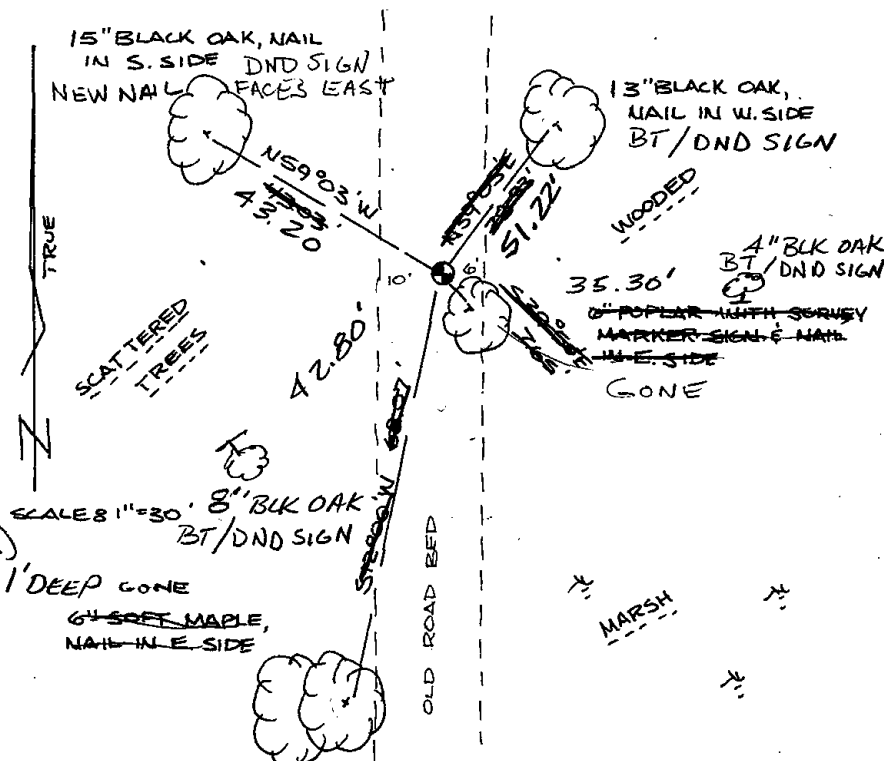 15" BLACK OAK, NAIL
IN S. SIDE DND SIGN
NEW NAIL FACES EAST
13" BLACK OAK,
NAIL IN W. SIDE
BT/DND SIGN
N59°03'W
43.03'
43.20
N39°05'E
51.22'
WOODED
TRUE
10'
6'
35.30'
BT
4" BLK OAK
/DND SIGN
6" POPLAR WITH SURVEY
MARKER SIGN & NAIL
IN E. SIDE
GONE
SCATTERED
TREES
42.80'
68.07'
N
SCALE 1"=30'
8" BLK OAK
BT/DND SIGN
1' DEEP GONE
6" SOFT MAPLE,
NAIL IN E. SIDE
OLD ROAD BED
MARSH